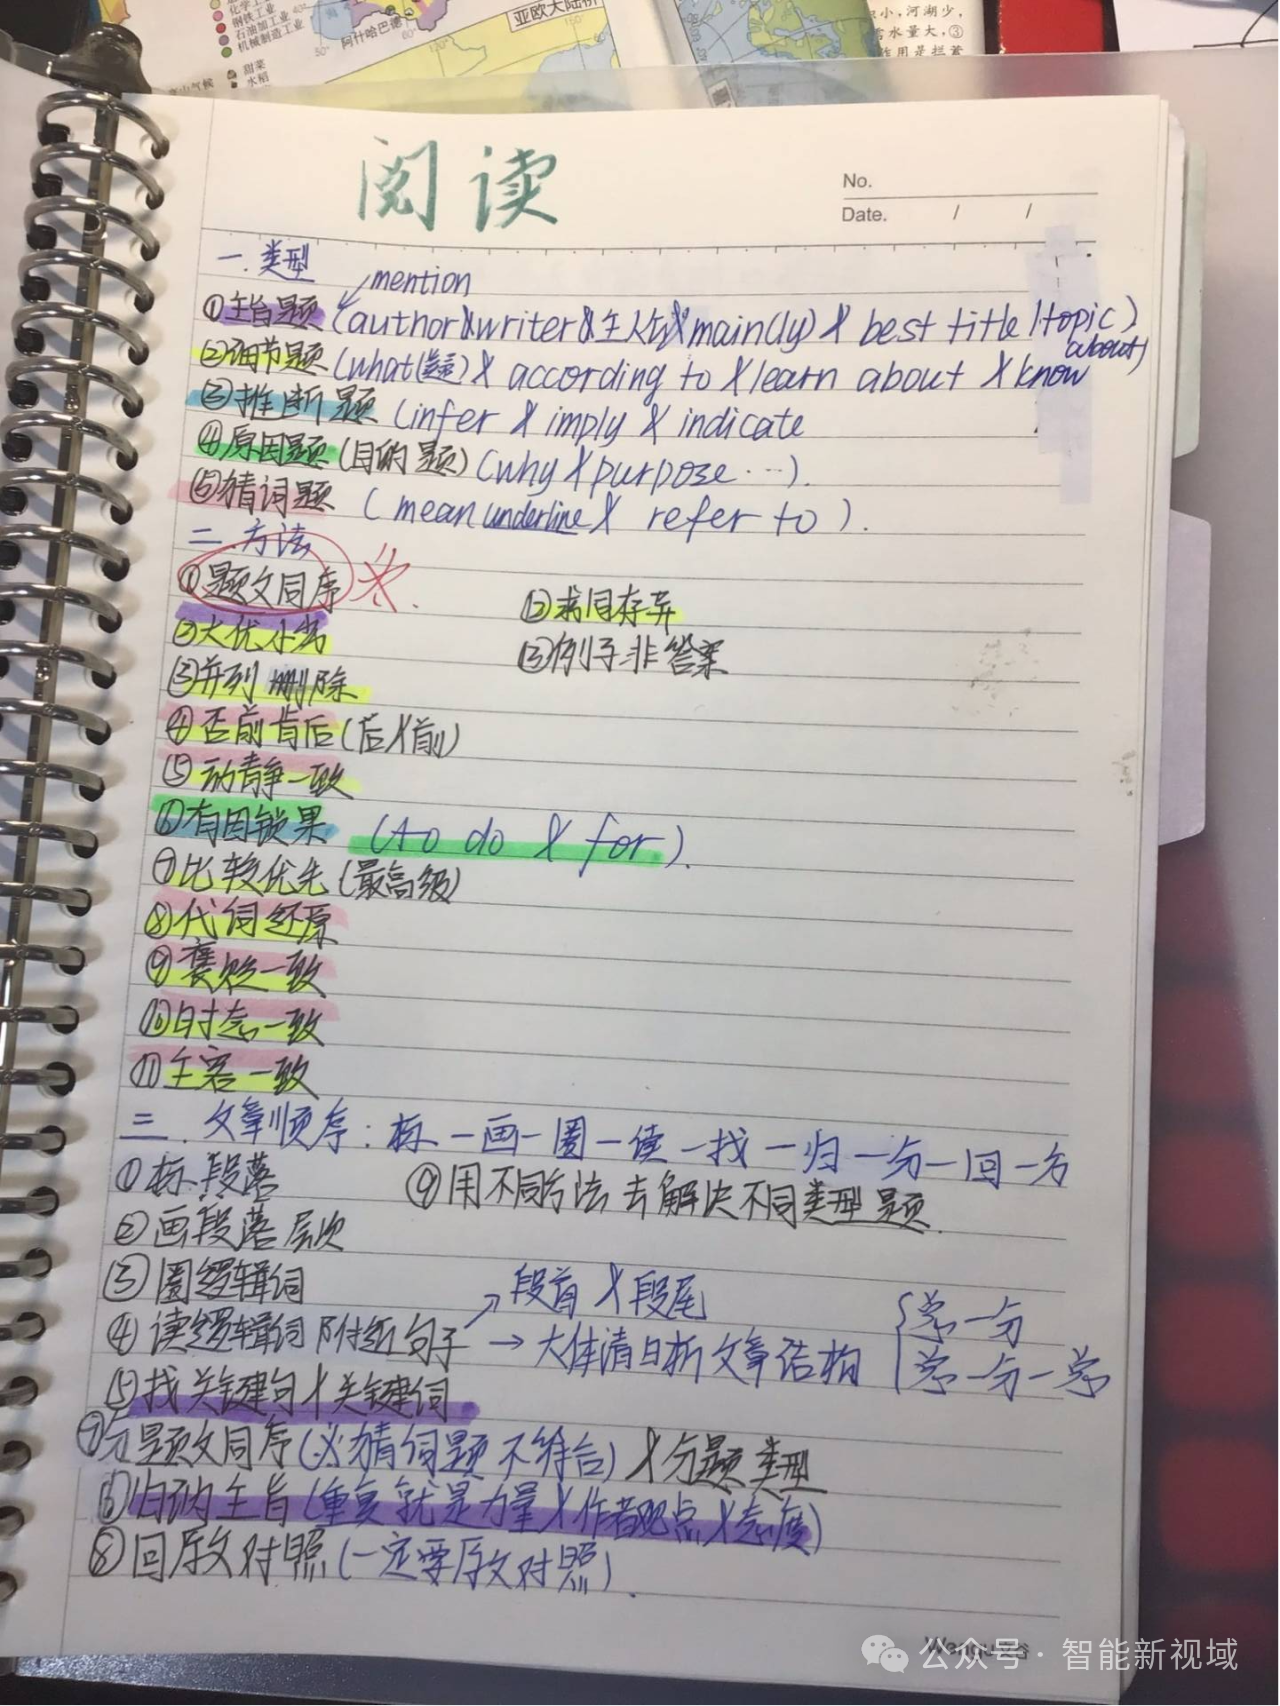 化学工业
钢铁工业
石油加工业
机械制造工业
甜菜
水稻
阿什哈巴德
亚欧大陆桥
小,河湖少,
含水量大,③
作用是拦蓄
阅读
No.
Date. / /
一.类型
mention
①主旨题(author&writer&主人公&main(ly)&best title/topic)
about)
②细节题(what(提)&according to&learn about&know
③推断题(infer & imply & indicate
④原因题(目的题)(why&purpose…).
⑤猜词题 (mean underline & refer to).
二.方法
①题文同序
②大优小劣
③并列删除
④否前肯后(后&前)
⑤动静一致
⑥有因锁果 (to do & for).
⑦比较优先(最高级)
⑧代词还原
⑨褒贬一致
⑩时态一致
⑪主客一致
⑫求同存异
⑬例子非答案
三.文章顺序:标一画一圈一读一找一归一分一回一方
①标段落 ⑨用不同方法去解决不同类型题.
②画段落层次
③圈逻辑词
④读逻辑词附近句子
→段首&段尾
→大体清晰文章结构
总一分
总一分一总
⑤找关键句&关键词
⑦分题文同序(必猜词题不符合)&分题类型
⑥归纳主旨(重复就是力量&作者观点&态度)
⑧回原文对照(一定要原文对照).
公众号·智能新视域